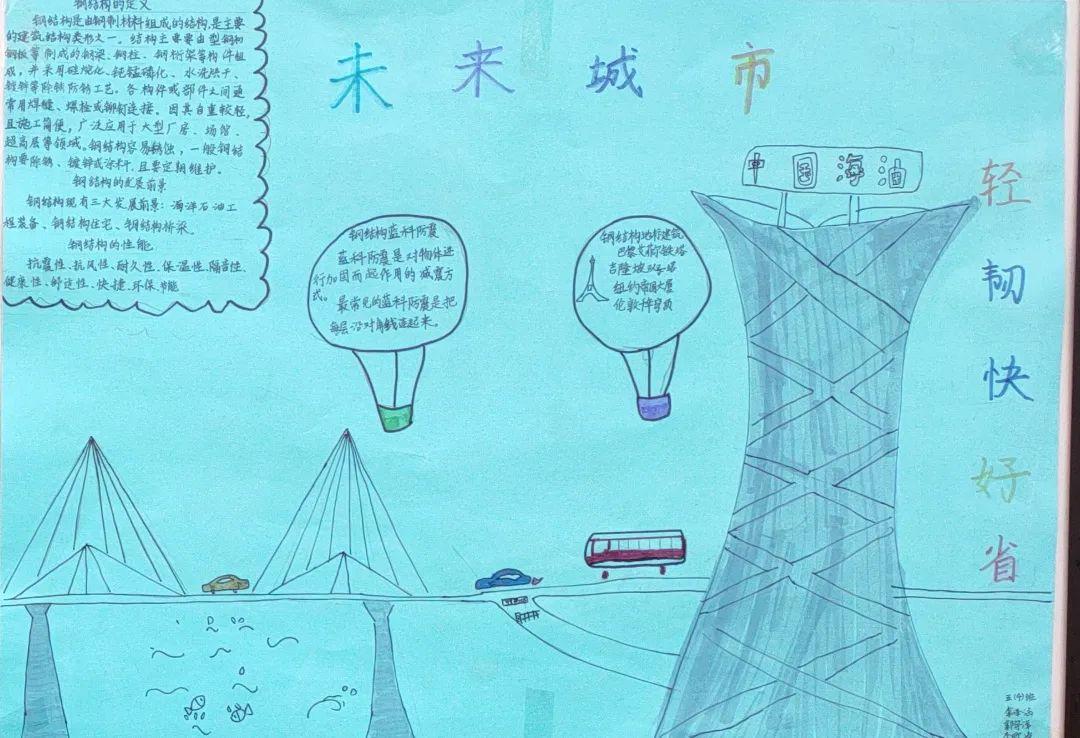 钢结构的定义
钢结构是由钢制材料组成的结构,是主要
的建筑结构类形之一。结构主要由型钢和
钢板等制成的钢梁、钢柱、钢桁架等构件组
成,并采用硅烷化、纯锰磷化、水洗烘干、
镀锌等除锈防锈工艺。各构件或部件之间通
常用焊缝、螺栓或铆钉连接。因其自重较轻,
且施工简便,广泛应用于大型厂房、场馆、
超高层等领域。钢结构容易锈蚀,一般钢结
构要除锈、镀锌或涂料,且要定期维护。
钢结构的发展前景
钢结构现有三大发展前景:海洋石油工
程装备、钢结构住宅、钢结构桥梁。
钢结构的性能
抗震性、抗风性、耐久性、保温性、隔音性、
健康性、舒适性、快捷、环保、节能
未来城市
钢结构蓝科防震
蓝科防震是对物体进
行加固而起作用的减震方
式。
最常见的蓝科防震是把
每层沿对角线连起来。
钢结构地标建筑
巴黎艾菲尔铁塔
吉隆坡双子塔
纽约帝国大厦
伦敦
中国海油
轻
韧
快
好
省
五(4)班